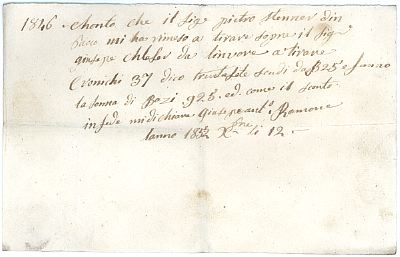 1846. Chonto che il Sig.e pietro Stenner din
Sacco mi ha rimeso a tirare sopra il Sig.e
giusepe Chlefer da linvore a tirare
Cronichi 37 dico trentasete scudi da B 25 e fanno
la soma di Bazi 925. ed. come il sconto
in fede mi dichiaro Giusepe ant.o Ramone
lanno li 12 -